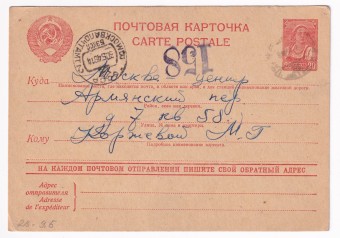 ПОЧТОВАЯ КАРТОЧКА
CARTE POSTALE
158
Куда Москва центр
Армянский пер
д 7 кв 58
Кому Коржевой М. Г
НА КАЖДОМ ПОЧТОВОМ ОТПРАВЛЕНИИ ПИШИТЕ СВОЙ ОБРАТНЫЙ АДРЕС
Адрес
отправителя
Adresse de
l'expéditeur